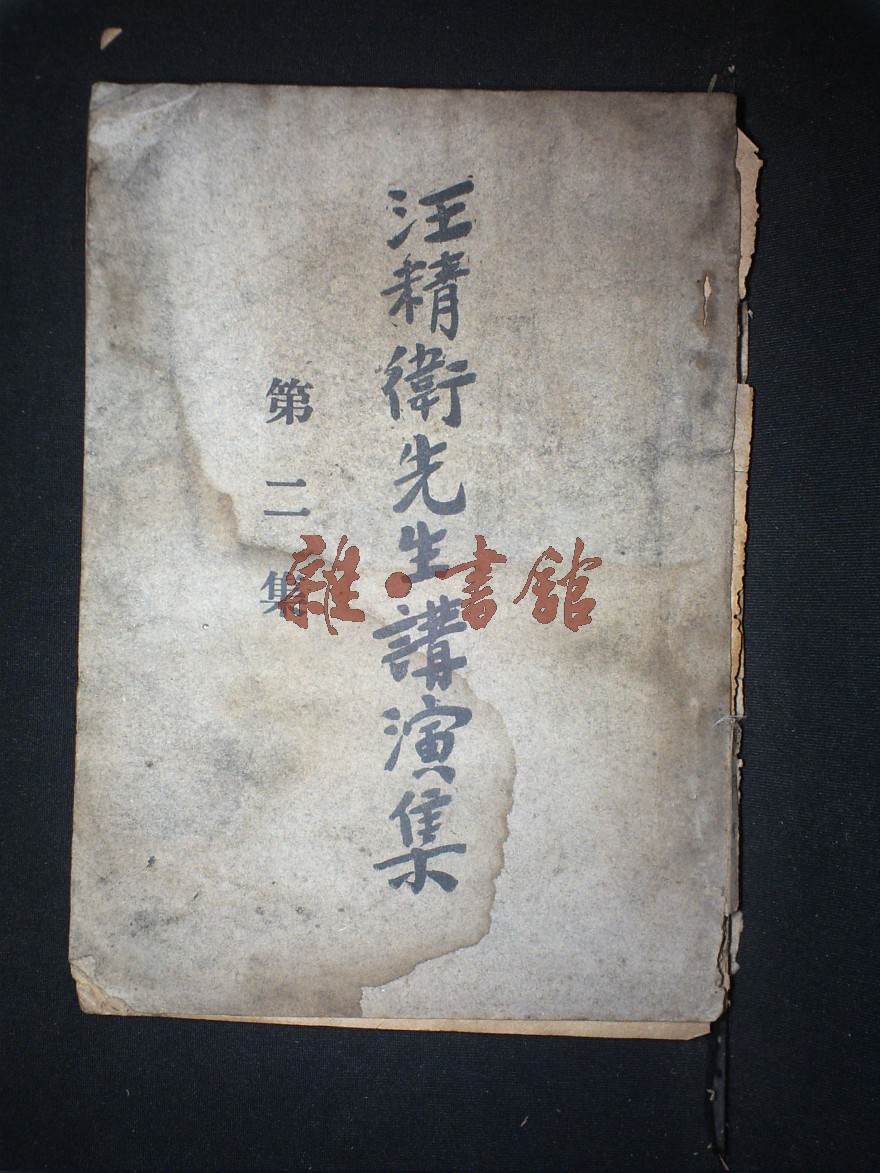 汪精衛先生講演集
第二集
雜·書館